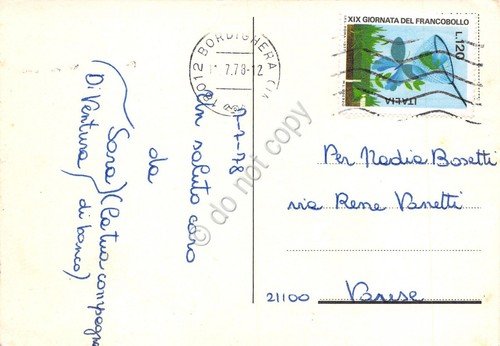 XIX GIORNATA DEL FRANCOBOLLO
L.120
ITALIA
BORDIGHERA
7.78-12
7-7-78
Un saluto caro
da
Sara (la tua compagna
Di Ventura di banco)
Per Nadia Bosetti
via Rene Vanetti
21100 Varese
© do not copy